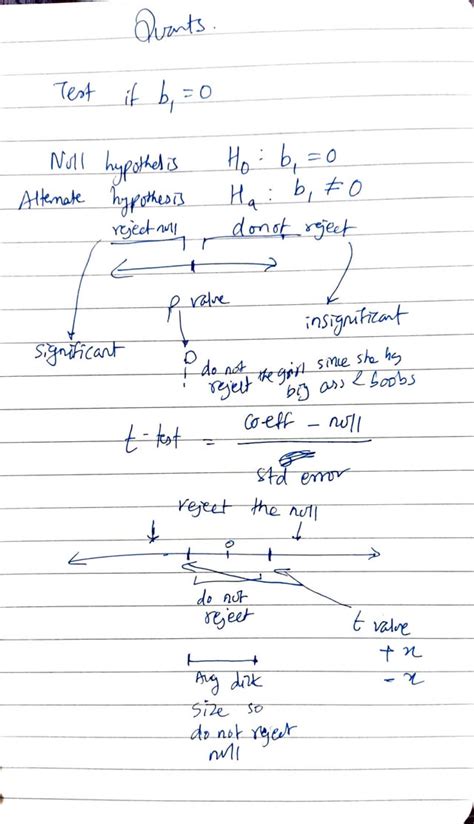 Quants.
Test if b₁ = 0
Null hypothesis H₀ : b₁ = 0
Alternate hypothesis Hₐ : b₁ ≠ 0
reject null do not reject
p value
significant
insignificant
do not
reject the girl since she has
big ass & boobs
t-test = coeff - null
std error
reject the null
0
do not
reject
t value
+ x
- x
Avg dick
size so
do not reject
null